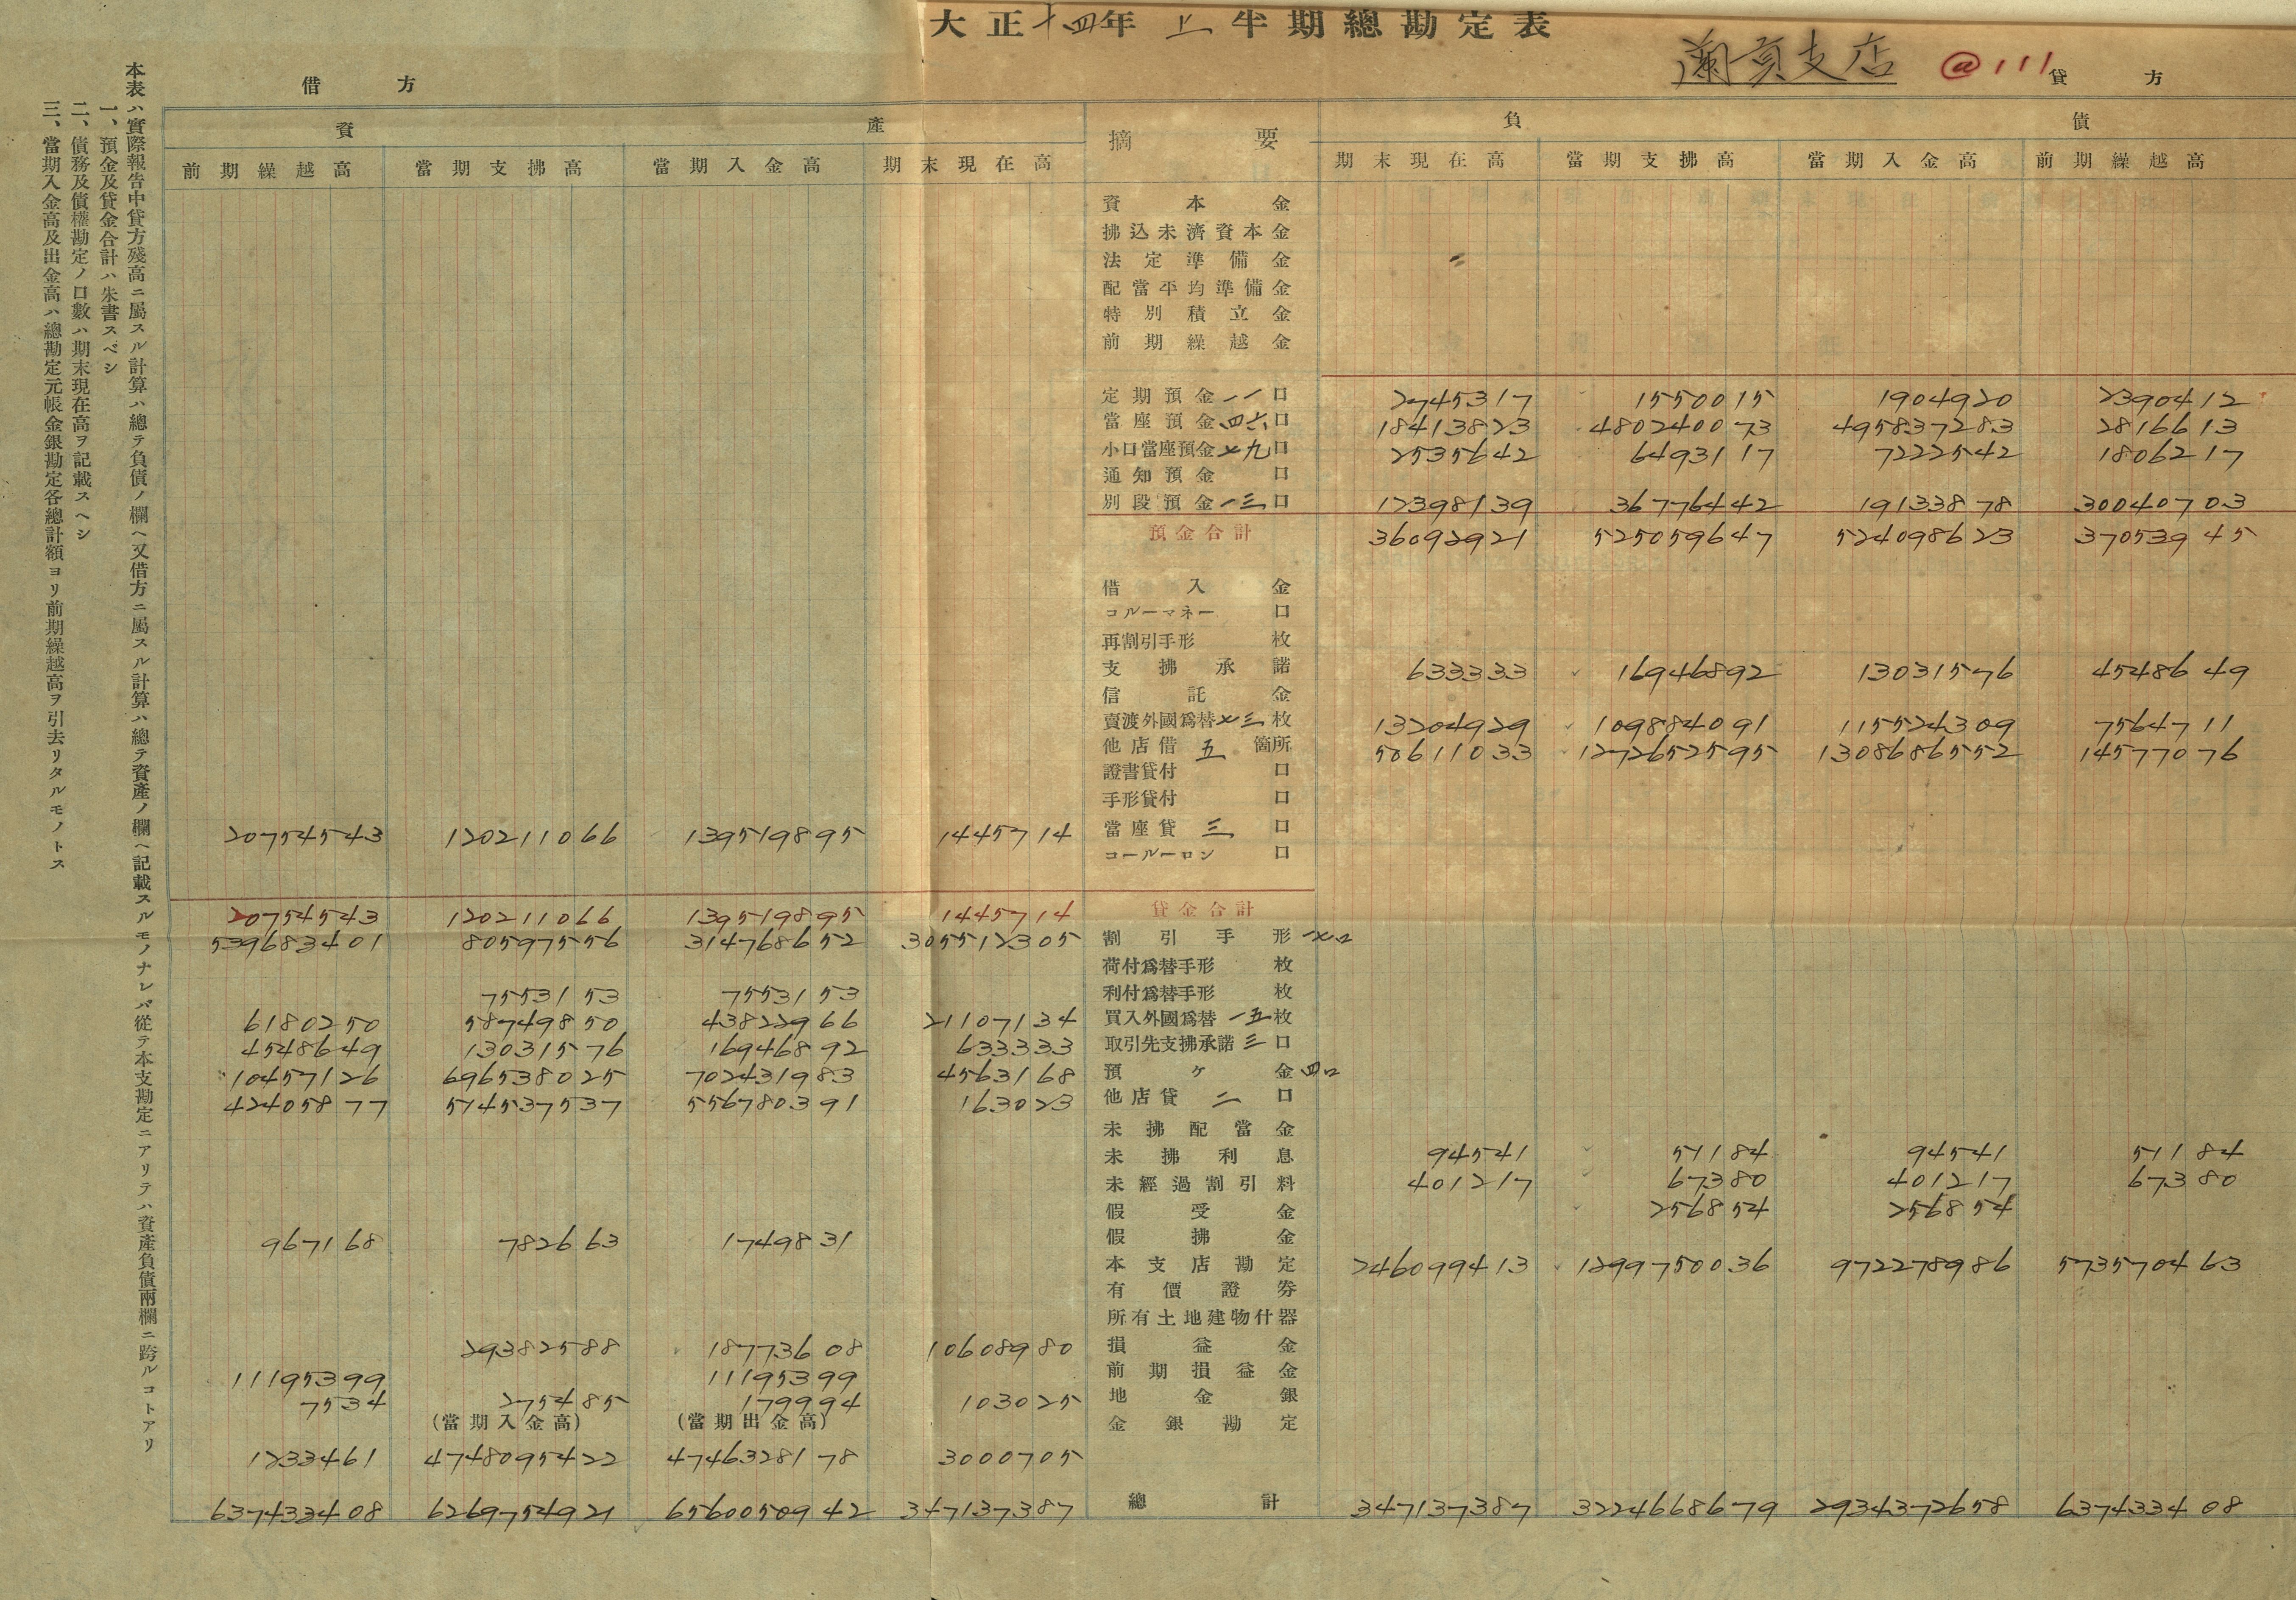 大正十四年上半期總勘定表
蘭貢支店 @111
借方 貸方
資產 摘要 負債
前期繰越高 當期支拂高 當期入金高 期末現在高 期末現在高 當期支拂高 當期入金高 前期繰越高
資本金
拂込未濟資本金
法定準備金
配當平均準備金
特別積立金
前期繰越金
定期預金 一一口 2745317 1550015 1904920 2390412
當座預金 四六口 18413823 480240073 495837283 2816613
小口當座預金 七九口 2535642 6493117 7222542 1806217
通知預金 口
別段預金 一三口 12398139 36776442 19133878 30040703
預金合計 36092921 525059647 524098623 37053945
借入金
コルーマネー 口
再割引手形 枚
支拂承諾 633333 16946892 13031576 4548649
信託金
賣渡外國爲替 七三枚 13204929 109884091 115524309 7564711
他店借 五箇所 50611033 1272652595 1308686552 14577076
證書貸付 口
手形貸付 口
20754543 120211066 139519895 1445714 當座貸 三口
コールーロン 口
20754543 120211066 139519895 1445714 貸金合計
539683401 80597556 314768652 305512305 割引手形 一七口
荷付爲替手形 枚
7553153 7553153 利付爲替手形 枚
6180250 58749850 43822966 21107134 買入外國爲替 一五枚
4548649 13031576 16946892 633333 取引先支拂承諾 三口
10457126 696538025 702431983 4563168 預ケ金 四口
42405877 514537537 556780391 163023 他店貸 二口
未拂配當金
未拂利息 94541 51184 94541 51184
未經過割引料 401217 67380 401217 67380
假受金 256854 256854
967168 782663 1749831 假拂金
本支店勘定 246099413 1299750036 972278986 573570463
有價證券
所有土地建物什器
29382588 18773608 10608980 損益金
11195399 11195399 前期損益金
7534 275485 179994 103025 地金銀
(當期入金高) (當期出金高) 金銀勘定
1233461 4748095422 4746328178 3000705
637433408 6269754921 6560050942 347137387 總計 347137387 3224668679 2934372658 637433408
本表ハ實際報告中貸方殘高ニ屬スル計算ハ總テ負債ノ欄ヘ又借方ニ屬スル計算ハ總テ資產ノ欄ヘ記載スルモノナレバ從テ本支勘定ニアリテハ資產負債兩欄ニ跨ルコトアリ
一、預金及貸金合計ハ朱書スベシ
二、債務及債權勘定ノ口數ハ期末現在高ヲ記載スヘシ
三、當期入金高及出金高ハ總勘定元帳金銀勘定各總計額ヨリ前期繰越高ヲ引去リタルモノトス